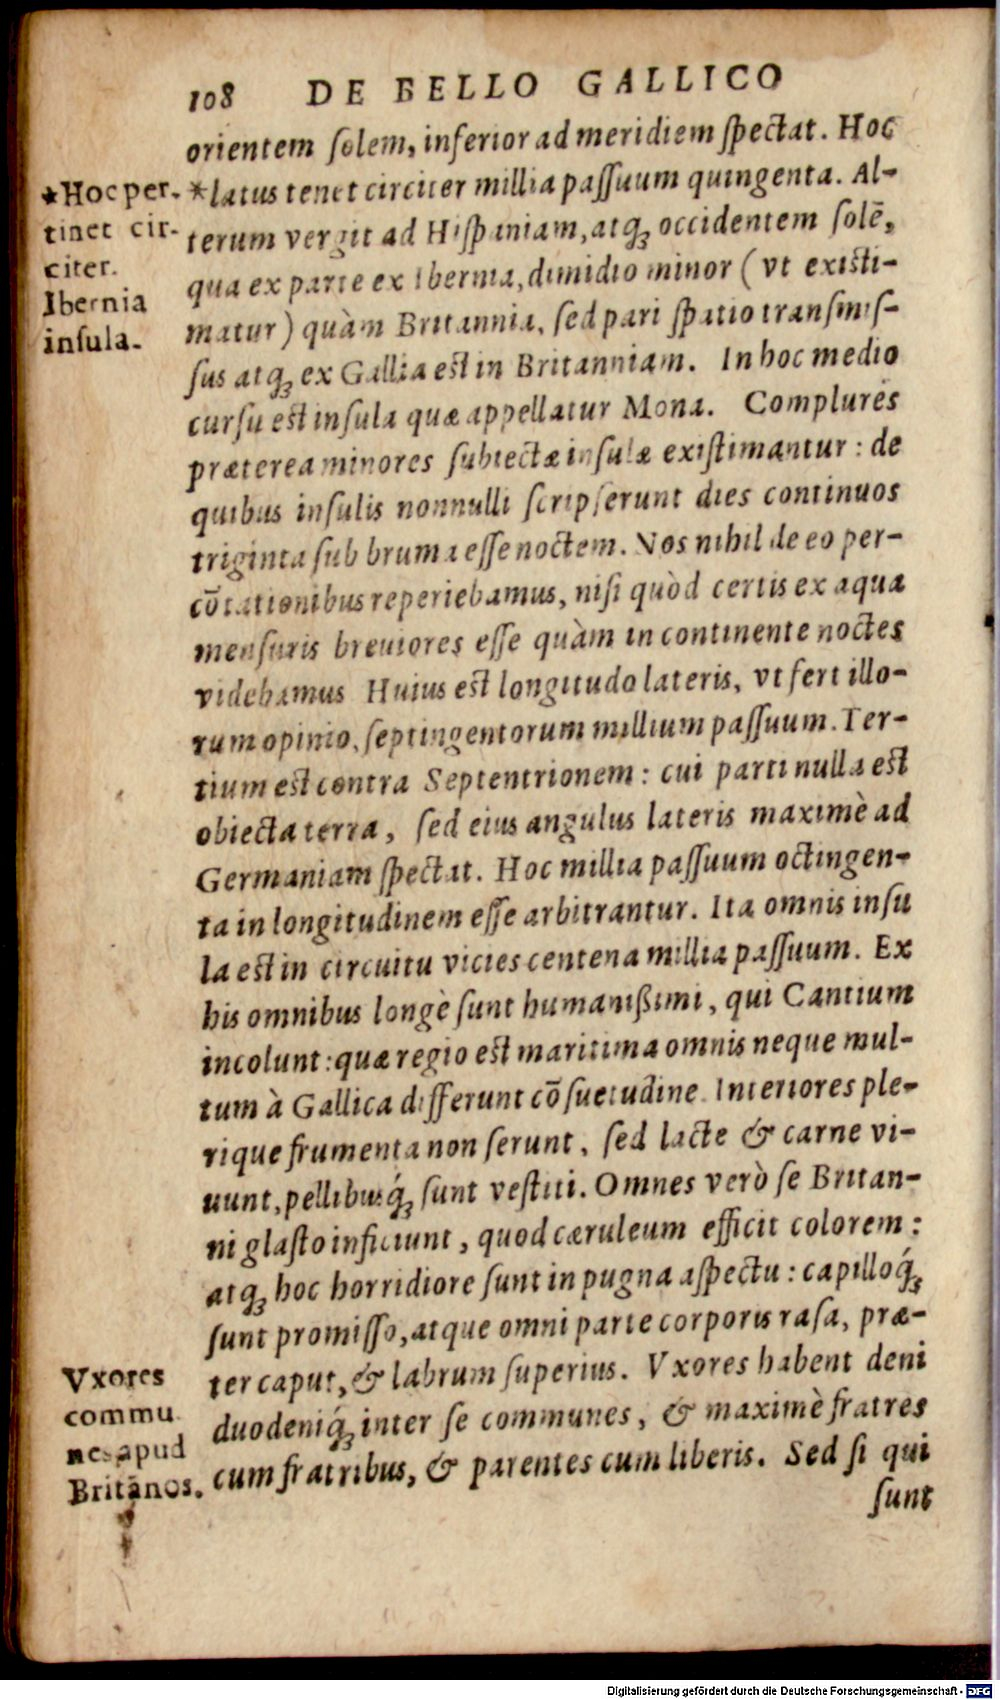 108 DE BELLO GALLICO
orientem solem, inferior ad meridiem spectat. Hoc
*latus tenet circiter millia passuum quingenta. Al-
terum vergit ad Hispaniam, atq; occidentem solē,
qua ex parte ex Ibernia, dimidio minor (vt existi-
matur) quàm Britannia, sed pari spatio transmis-
sus atq; ex Gallia est in Britanniam. In hoc medio
cursu est insula quæ appellatur Mona. Complures
præterea minores subiectæ insulæ existimantur: de
quibus insulis nonnulli scripserunt dies continuos
triginta sub bruma esse noctem. Nos nihil de eo per-
cōtationibus reperiebamus, nisi quòd certis ex aqua
mensuris breuiores esse quàm in continente noctes
videbamus Huius est longitudo lateris, vt fert illo-
rum opinio, septingentorum millium passuum. Ter-
tium est contra Septentrionem: cui parti nulla est
obiecta terra, sed eius angulus lateris maximè ad
Germaniam spectat. Hoc millia passuum octingen-
ta in longitudinem esse arbitrantur. Ita omnis insu
la est in circuitu vicies centena millia passuum. Ex
his omnibus longè sunt humanißimi, qui Cantium
incolunt: quæ regio est maritima omnis neque mul-
tum à Gallica differunt cōsuetudine. Interiores ple-
rique frumenta non serunt, sed lacte & carne vi-
uunt, pellibusq́; sunt vestiti. Omnes verò se Britan-
ni glasto inficiunt, quod cæruleum efficit colorem:
atq; hoc horridiore sunt in pugna aspectu: capilloq́;
sunt promisso, atque omni parte corporis rasa, præ-
ter caput, & labrum superius. Vxores habent deni
duodeniq́; inter se communes, & maximè fratres
cum fratribus, & parentes cum liberis. Sed si qui
sunt
*Hoc per-
tinet cir-
citer.
Ibernia
insula.
Vxores
commu
nes apud
Britānos.
Digitalisierung gefördert durch die Deutsche Forschungsgemeinschaft - DFG